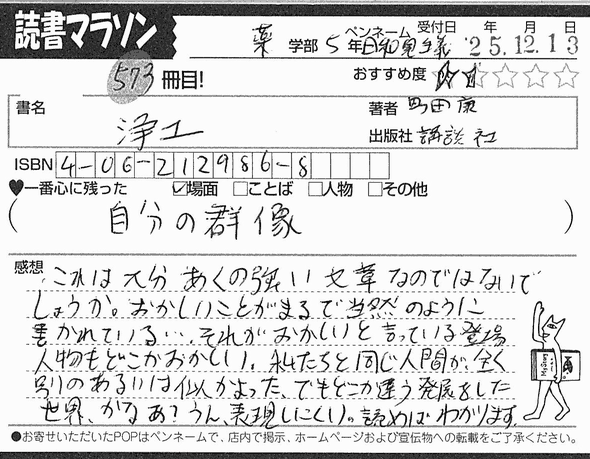 読書マラソン
薬 学部 5 年 ペンネーム 日和見主義 受付日 '25.12.13 年 月 日
573 冊目! おすすめ度 ★★☆☆☆
書名 浄土 著者 町田康
出版社 講談社
ISBN 4-06-212986-8
♥一番心に残った ☑場面 □ことば □人物 □その他
(自分の群像)
感想 これは大分あくの強い文章なのではないで
しょうか。おかしいことがまるで当然のように
書かれている…、それがおかしいと言っている登場
人物もどこかおかしい。私たちと同じ人間が、全く
別のあるいは似かよった、でもどこか違う発展をした
世界、かなあ?うん、表現しにくい。読めばわかります。
●お寄せいただいたPOPはペンネームで、店内で掲示、ホームページおよび宣伝物への転載をご了承ください。